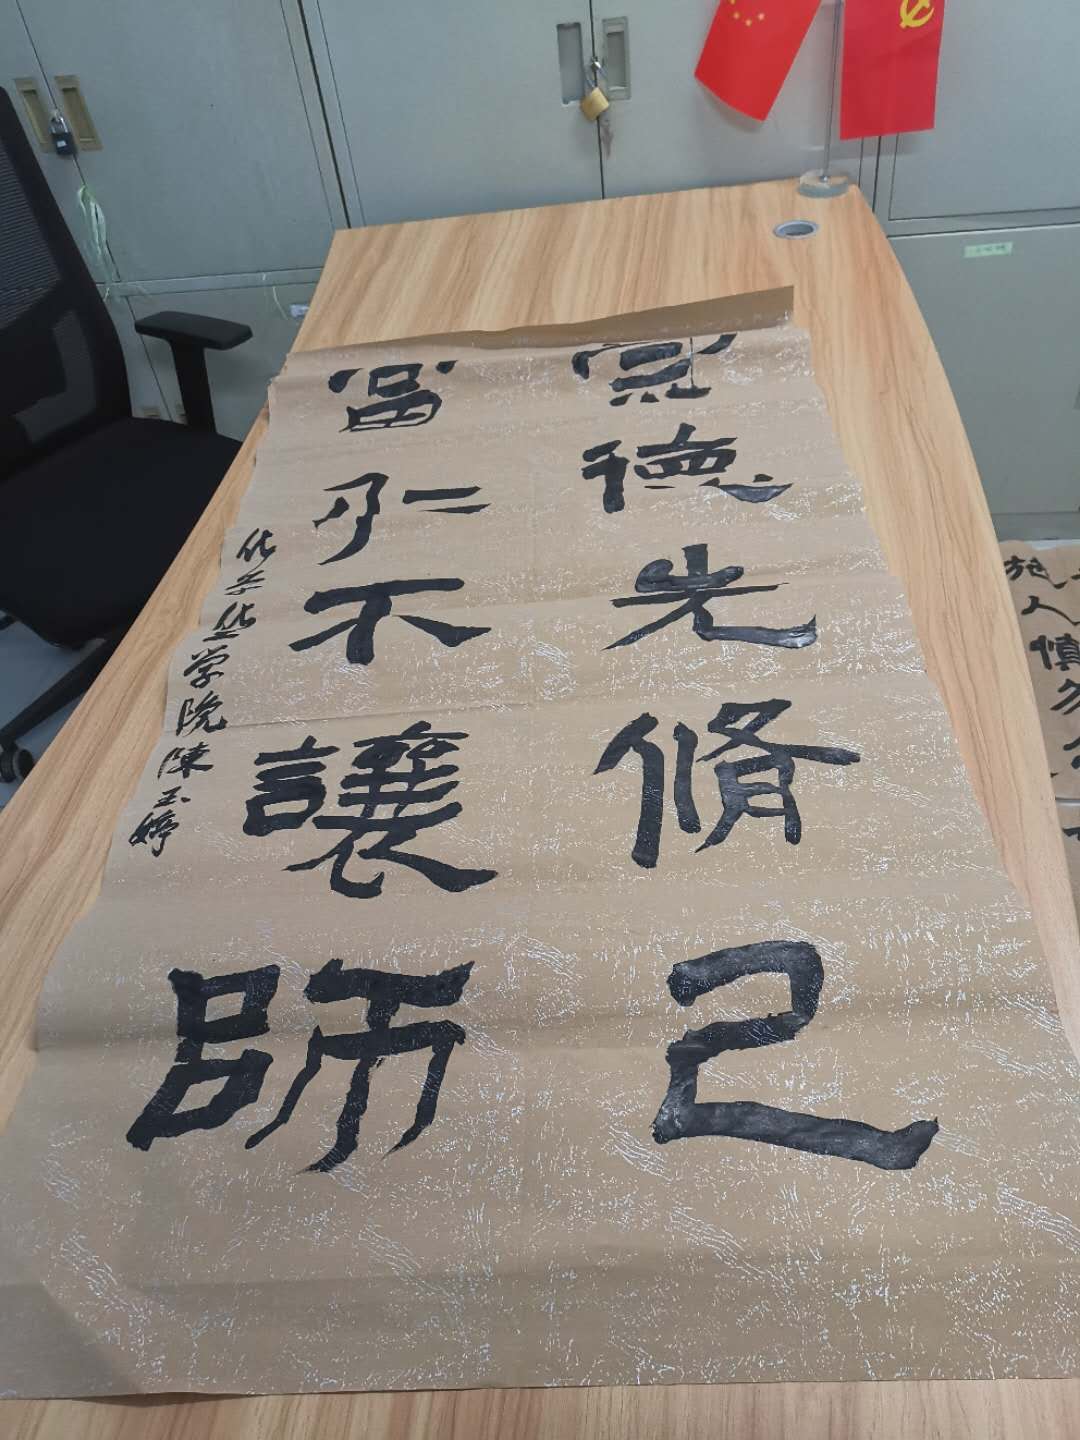 德先脩己
當仁不讓師
化学化工学院陳玉婷
施人慎勿